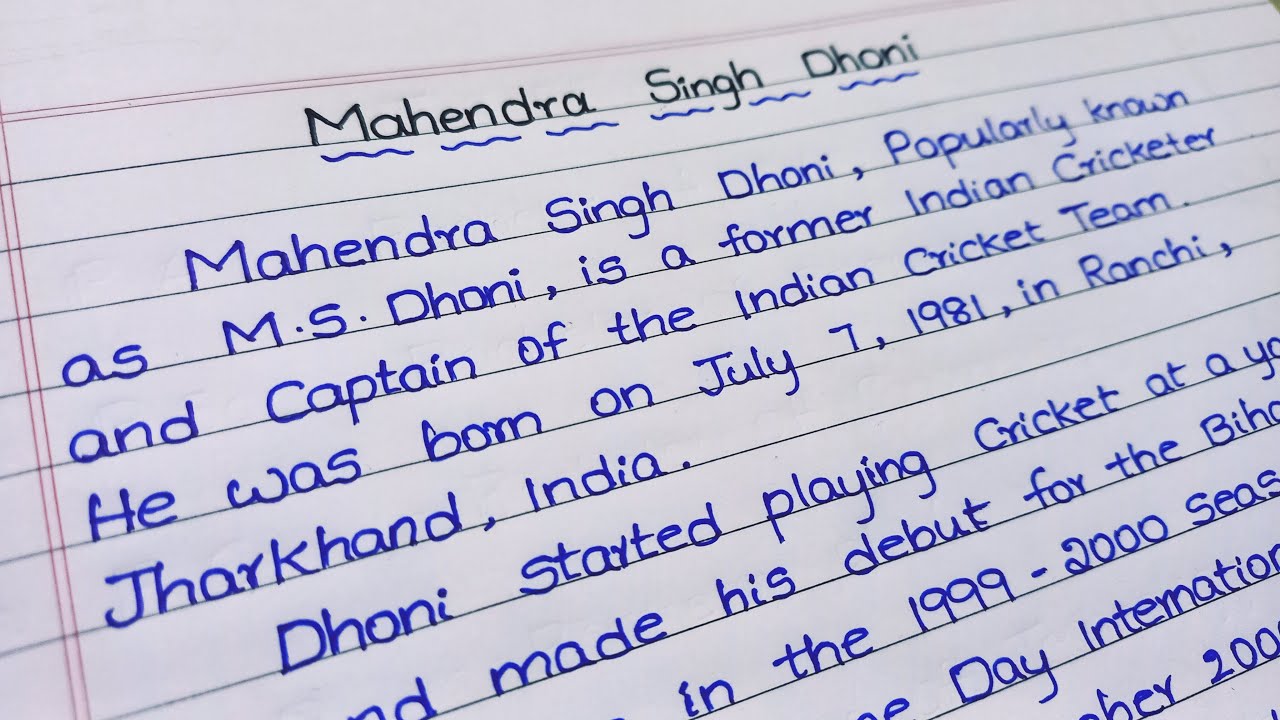 Mahendra Singh Dhoni
Mahendra Singh Dhoni, Popularly known
as M.S. Dhoni, is a former Indian Cricketer
and Captain of the Indian Cricket Team.
He was born on July 7, 1981, in Ranchi,
Jharkhand, India.
Dhoni started playing Cricket at a
made his debut for the
in the 1999-2000
Day